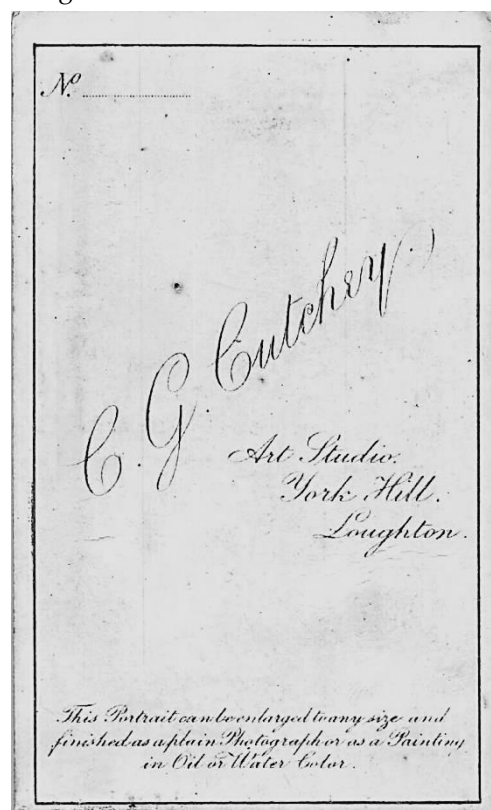 No.
C. G. Cutchey.
Art Studio.
York Hill.
Loughton.
This Portrait can be enlarged to any size and
finished as a plain Photograph or as a Painting
in Oil or Water Color.